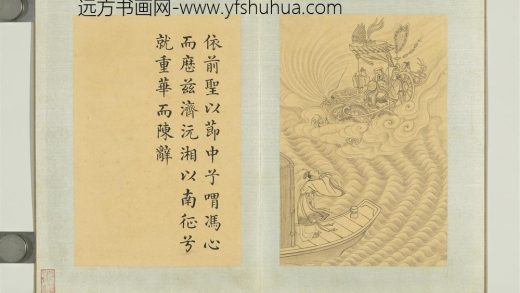 远方书画网-www.yfshuhua.com
依前聖以節中兮喟馮心
而歷兹濟沅湘以南征兮
就重華而陳辭